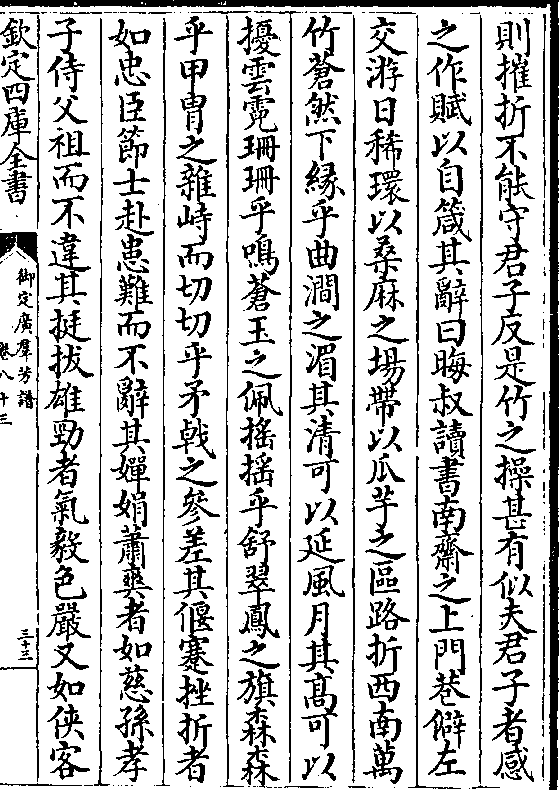 則摧折不能守君子反是竹之操甚有似夫君子者感
之作賦以自箴其辭曰晦叔讀書南齋之上門巷僻左
交游日稀環以桑麻之場帶以瓜芋之區路折西南萬
竹蒼然下緣乎曲澗之湄其清可以延風月其高可以
擾雲霓珊珊乎鳴蒼玉之佩搖搖乎舒翠鳳之旗森森
乎甲冑之雜峙而切切乎矛戟之參差其偃蹇挫折者
如忠臣節士赴患難而不辭其嬋娟蕭爽者如慈孫孝
子侍父祖而不違其挺拔雄勁者氣毅色嚴又如俠客
欽定四庫全書
御定廣羣芳譜
卷八十三
三十三